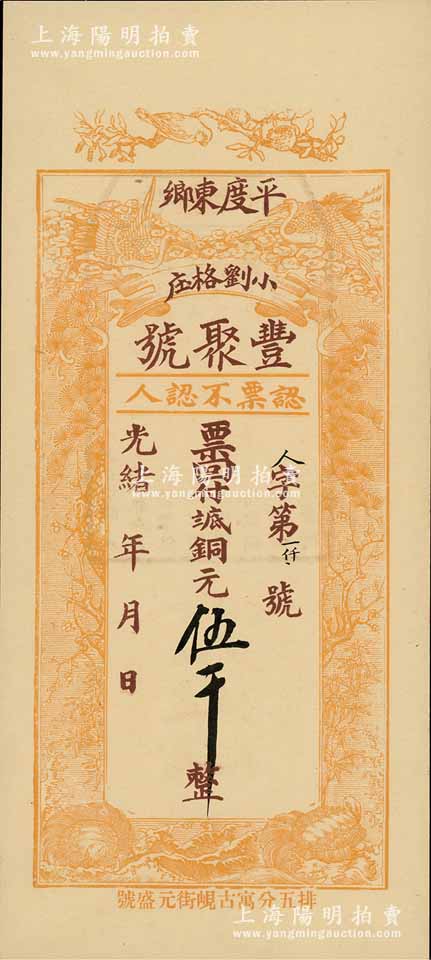 上海陽明拍賣
www.yangmingauction.com
平度東鄉
小劉格庄
豐聚號
認票不認人
人字第一仟號
票存詆銅元伍千整
光緒 年 月 日
上海陽明拍賣
www.yangmingauction.com
排五分寓古峴街元盛號
上海陽明拍賣
www.yangmingauction.com